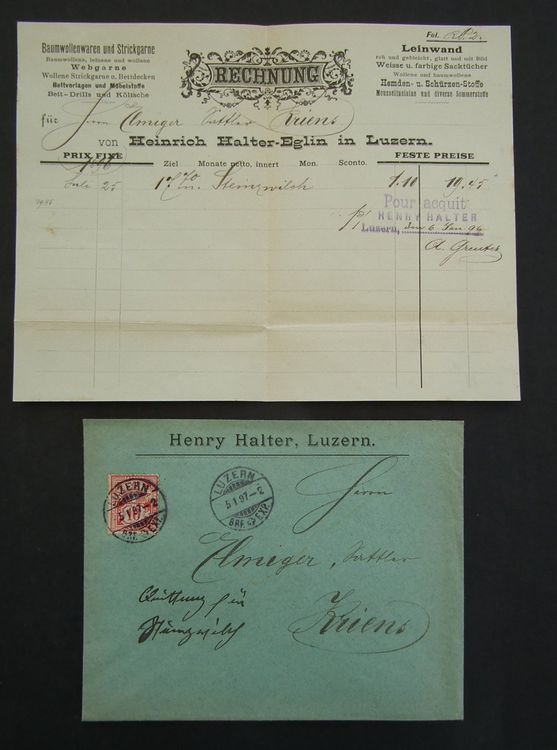 Fol.
Baumwollenwaren und Strickgarne
Baumwollene, leinene und wollene
Webgarne
Wollene Strickgarne u. Bettdecken
Bettvorlagen und Möbelstoffe
Bett-Drills und Kölische
RECHNUNG
Leinwand
roh und gebleicht, glatt und mit Bild
Weisse u. farbige Sacktücher
Wollene und baumwollene
Hemden- u. Schürzen-Stoffe
Mousselinettes und diverse Sommerstoffe
für Herrn Elmiger Sattler Kriens
von Heinrich Halter-Eglin in Luzern.
PRIX FIXE Ziel Monate netto, innert Mon. Sconto. FESTE PREISE
1896
Juli 25 1.10 10.45
Pour acquit
HENRY HALTER
Luzern, den 6 Jan 96
Henry Halter, Luzern.
LUZERN
5 I 97-2
BRF. EXP.
LUZERN
5 I 97-2
BRF. EXP.
Herrn
Elmiger, Sattler
Kriens
Quittung für